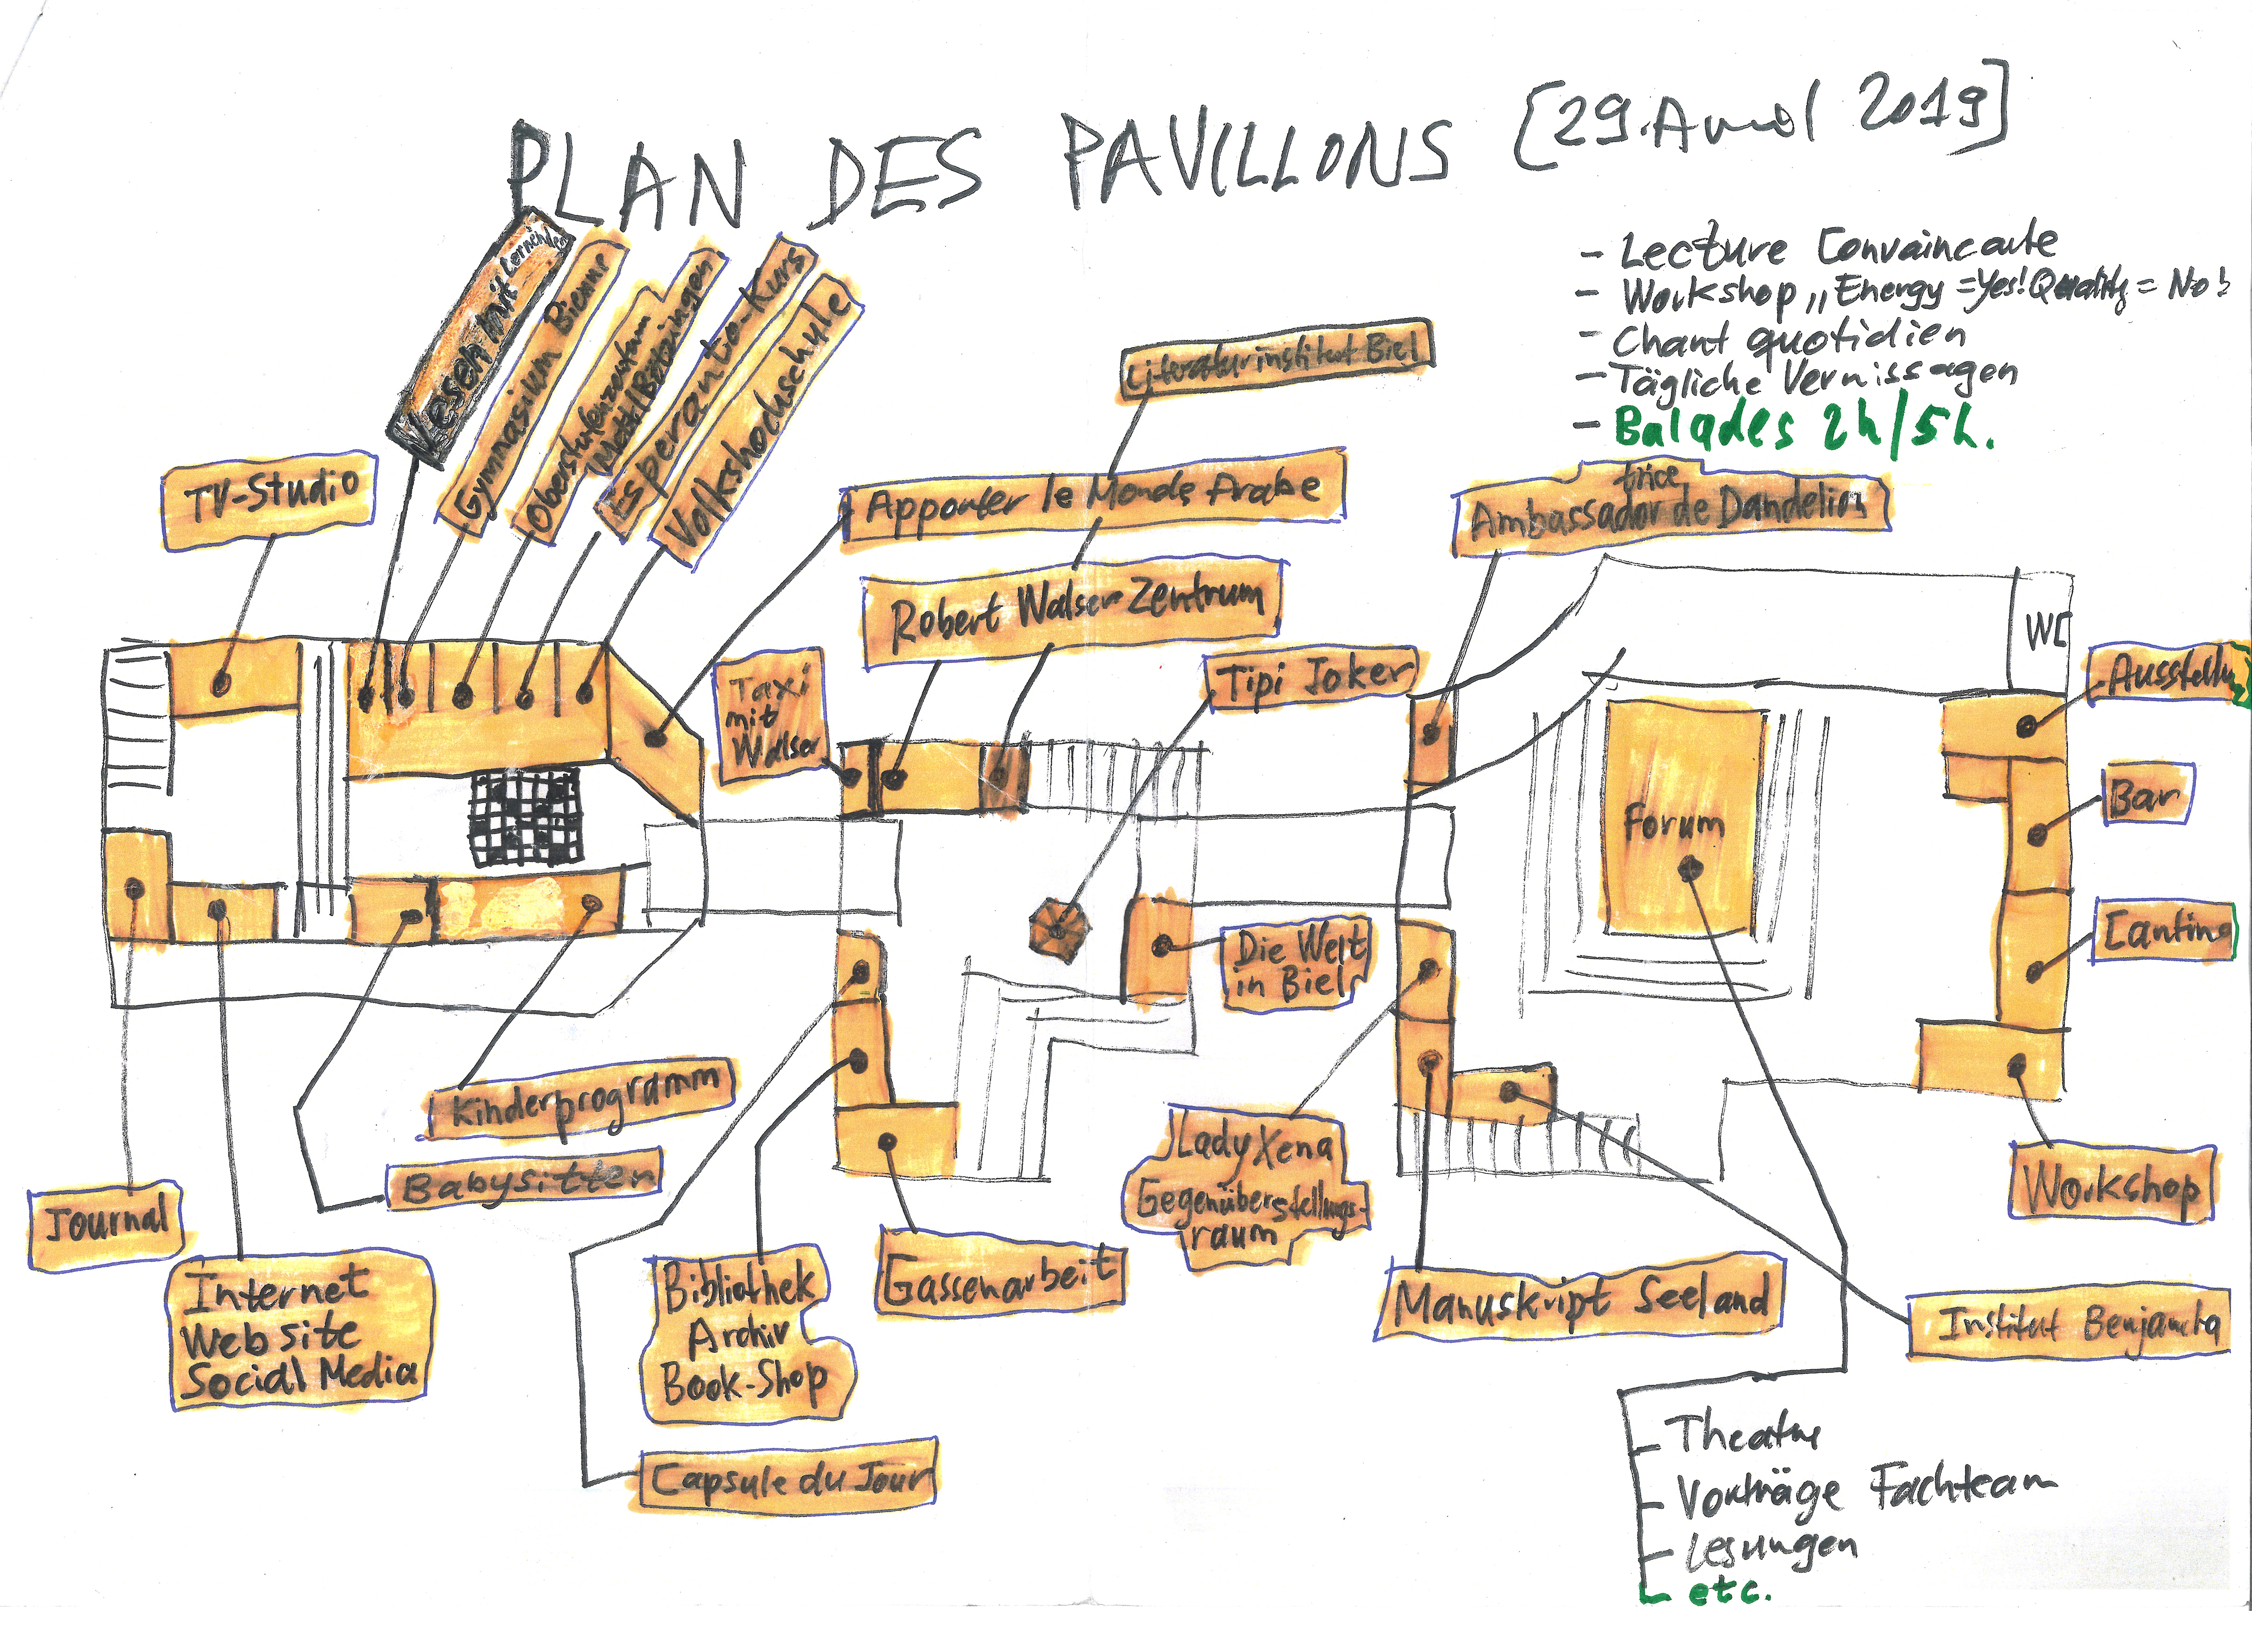 PLAN DES PAVILLONS [29. Avril 2019]
- Lecture Convaincante
- Workshop „Energy = Yes! Quality = No!
- Chant quotidien
- Tägliche Vernissagen
- Balades 2h/5h.
Lesen mit Lernenden
Gymnasium Bienne
Oberstufenzentrum
Mett/Bötzingen
Esperanto-Kurs
Volkshochschule
Literaturinstitut Biel
TV-Studio
Apporter le Monde Arabe
trice
Ambassador de Dandelion
Robert Walser-Zentrum
Taxi
mit
Walser
Tipi Joker
WC
Ausstellu
Bar
Forum
Cantina
Die Welt
in Biel
Kinderprogramm
Babysitten
Journal
Internet
Website
Social Media
Bibliothek
Archiv
Book-Shop
Capsule du Jour
Gassenarbeit
Lady Xena
Gegenüberstellungs-
raum
Manuskript Seeland
Workshop
Institut Benjamenta
Theatre
Vorträge Fachteam
Lesungen
etc.